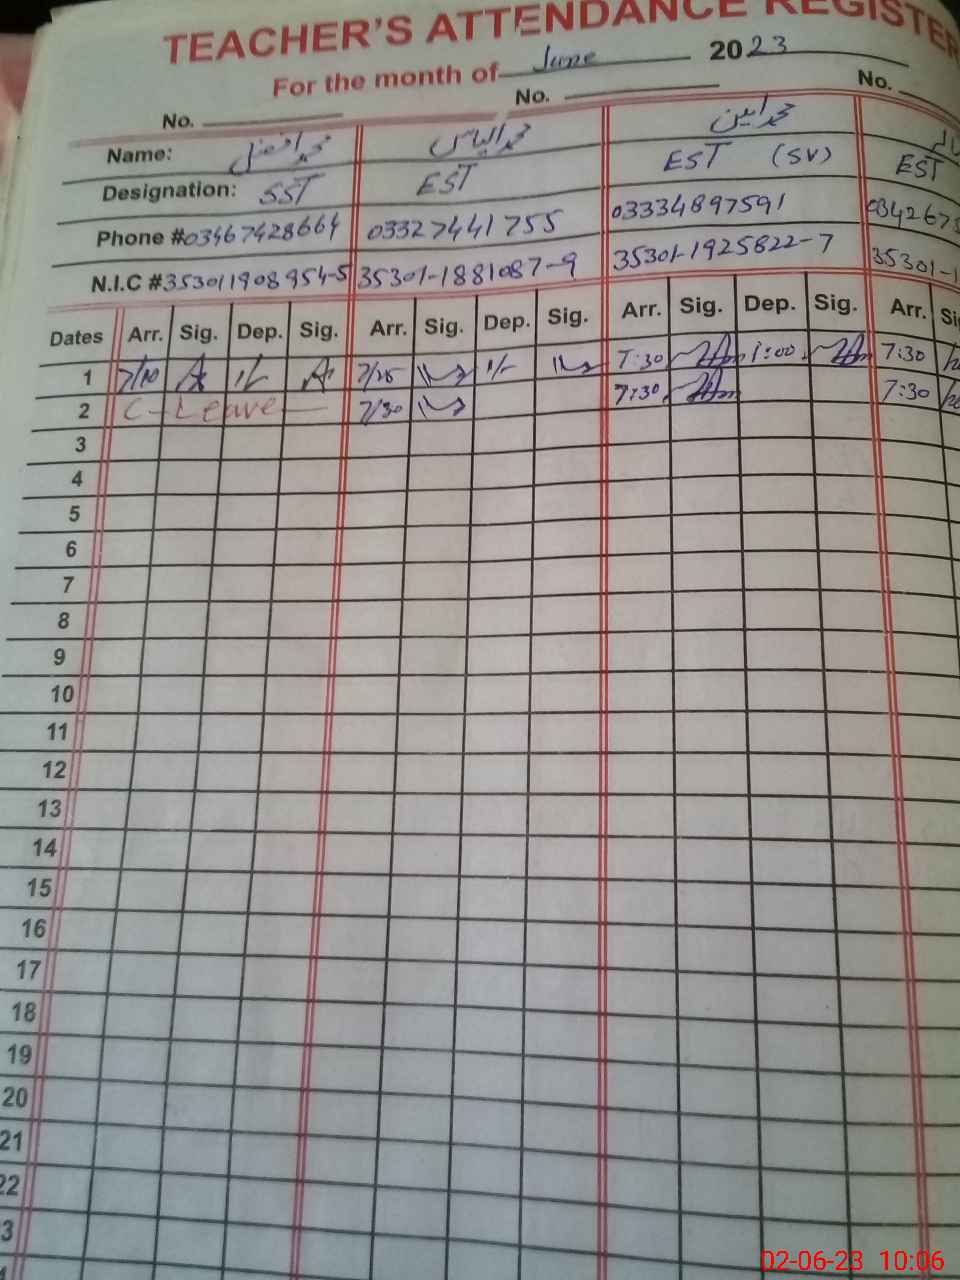 TEACHER'S ATTENDANCE REGISTER
For the month of June 2023
No. No. No.
Name: محمد افضل محمد الیاس محمد امین
Designation: SST EST EST (SV) EST
Phone # 03467428664 03327441755 03334897591 0342675
N.I.C # 353011908954-5 35301-1881087-9 35301-1925822-7 35301-1
Dates Arr. Sig. Dep. Sig. Arr. Sig. Dep. Sig. Arr. Sig. Dep. Sig. Arr. Si
1 7/10 1/- 7/25 1/- 7:30 1:00 7:30
2 C-Leave 7/30 7:30 7:30
3
4
5
6
7
8
9
10
11
12
13
14
15
16
17
18
19
20
21
22
3
02-06-23 10:06